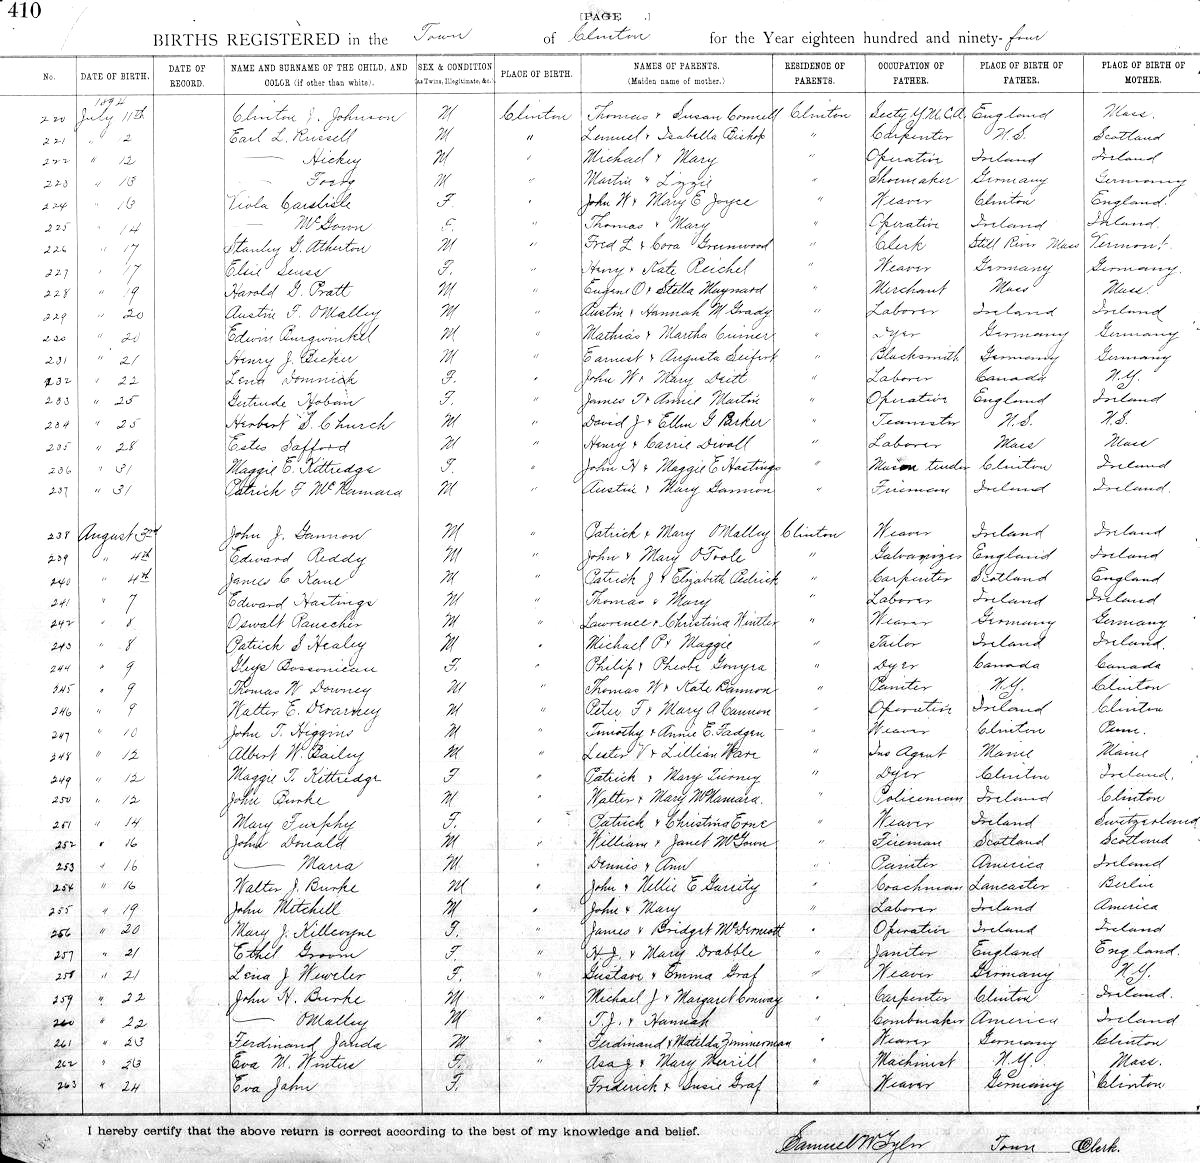 410
[PAGE .]
BIRTHS REGISTERED in the Town of Clinton for the Year eighteen hundred and ninety-four
No. DATE OF BIRTH. DATE OF RECORD. NAME AND SURNAME OF THE CHILD, AND COLOR (if other than white). SEX & CONDITION (as Twins, Illegitimate, &c.) PLACE OF BIRTH. NAMES OF PARENTS. (Maiden name of mother.) RESIDENCE OF PARENTS. OCCUPATION OF FATHER. PLACE OF BIRTH OF FATHER. PLACE OF BIRTH OF MOTHER.
1894
220 July 11th Clinton J. Johnson M Clinton Thomas & Susan Connell Clinton Secty Y.M.C.A. England Mass.
221 " 2 Earl L. Russell M " Lemuel & Isabella Bishop " Carpenter N.S. Scotland
222 " 12 — Hickey M " Michael & Mary " Operative Ireland Ireland
223 " 13 — M " Martin & Lizzie " Shoemaker Germany Germany
224 " 13 Viola Carslisle F. " John W & Mary E Joyce " Weaver Clinton England.
225 " 14 — McGown F. " Thomas & Mary " Operative Ireland Ireland.
226 " 17 Stanley G. Atherton M " Fred L & Cora Greenwood " Clerk Still River Mass Vermont.
227 " 17 Elsie Seuss F. " Henry & Kate Reichel " Weaver Germany Germany.
228 " 19 Harold G. Pratt M " Eugene O & Stella Maynard " Merchant Mass Mass.
229 " 20 Austin F. OMalley M " Austin & Hannah McGrady " Laborer Ireland Ireland
230 " 20 Edwin Burgwinkel M " Mathias & Martha " Dyer Germany Germany
231 " 21 Henry J. Becker M " Earnest & Augusta Seifert " Blacksmith Germany Germany
232 " 22 Lena Dominick F. " John W & Mary Deitl " Laborer Canada N.Y.
233 " 25 Gertrude Hoban F. " James T & Annie Martin " Operative England Ireland
234 " 25 Herbert S. Church M " David J & Ellen G Barker " Teamster N.S. N.S.
235 " 28 Estes Safford M " Henry & Carrie Divoll " Laborer Mass Mass
236 " 31 Maggie E. Kittredge F. " John H & Maggie E Hastings " Mason tender Clinton Ireland
237 " 31 Patrick F McNamara M " Austin & Mary Gannon " Fireman Ireland Ireland.
238 August 3rd John J. Gannon M " Patrick & Mary OMalley Clinton Weaver Ireland Ireland
239 " 4th Edward Reddy M " John & Mary OToole " Galvanizer England Ireland
240 " 4th James C Kane M " Patrick J & Elizabeth Pedrick " Carpenter Scotland England
241 " 7 Edward Hastings M " Thomas & Mary " Laborer Ireland Ireland
242 " 8 Oswalt Rauscher M " Lawrence & Christina Winkler " Weaver Germany Germany
243 " 8 Patrick S Healey M " Michael P & Maggie " Tailor Ireland Ireland.
244 " 9 Glays Bossonieau F. " Philip & Pheobe Gonyea " Dyer Canada Canada
245 " 9 Thomas W Downey M " Thomas W & Kate Bannon " Painter N.Y. Clinton
246 " 9 Walter E. Devarney M " Peter F & Mary A Cannon " Operative Ireland Clinton
247 " 10 John T. Higgins M " Timothy & Annie E. Fadgen " Weaver Clinton Penn.
248 " 12 Albert W. Bailey M " Lester V & Lillian Ware " Ins Agent Maine Maine
249 " 12 Maggie T. Kittredge F " Patrick & Mary Tierney " Dyer Clinton Ireland.
250 " 12 John Burke M " Walter & Mary McNamara. " Policeman Ireland Clinton
251 " 14 Mary Furphy F. " Patrick & Christina Erne " Weaver Ireland Switzerland
252 " 16 John Donald M " William & Janet McGown " Fireman Scotland Scotland
253 " 16 — Marra M " Dennis & Ann " Painter America Ireland
254 " 16 Walter J. Burke M " John & Nellie E Garrity " Coachman Lancaster Berlin
255 " 19 John Mitchell M " John & Mary " Laborer Ireland America
256 " 20 Mary J. Killcoyne F. " James & Bridget McDermott " Operative Ireland Ireland
257 " 21 Ethel Groom F. " H.J. & Mary Drabble " Janitor England England.
258 " 21 Lena J Weweler F. " Gustave & Emma Graf " Weaver Germany N.Y.
259 " 22 John H. Burke M " Michael J & Margaret Conway " Carpenter Clinton Ireland.
260 " 22 — OMalley M " T.J. & Hannah " Combmaker America Ireland
261 " 23 Ferdinand Janda M " Ferdinand & Matilda Zimmerman " Weaver Germany Clinton
262 " 23 Eva M. Winters F. " Asa J & Mary Merrill " Machinist N.Y. Mass.
263 " 24 Eva Jahn F. " Frederick & Susie Graf " Weaver Germany Clinton
I hereby certify that the above return is correct according to the best of my knowledge and belief.
Samuel W Tyler Town Clerk.